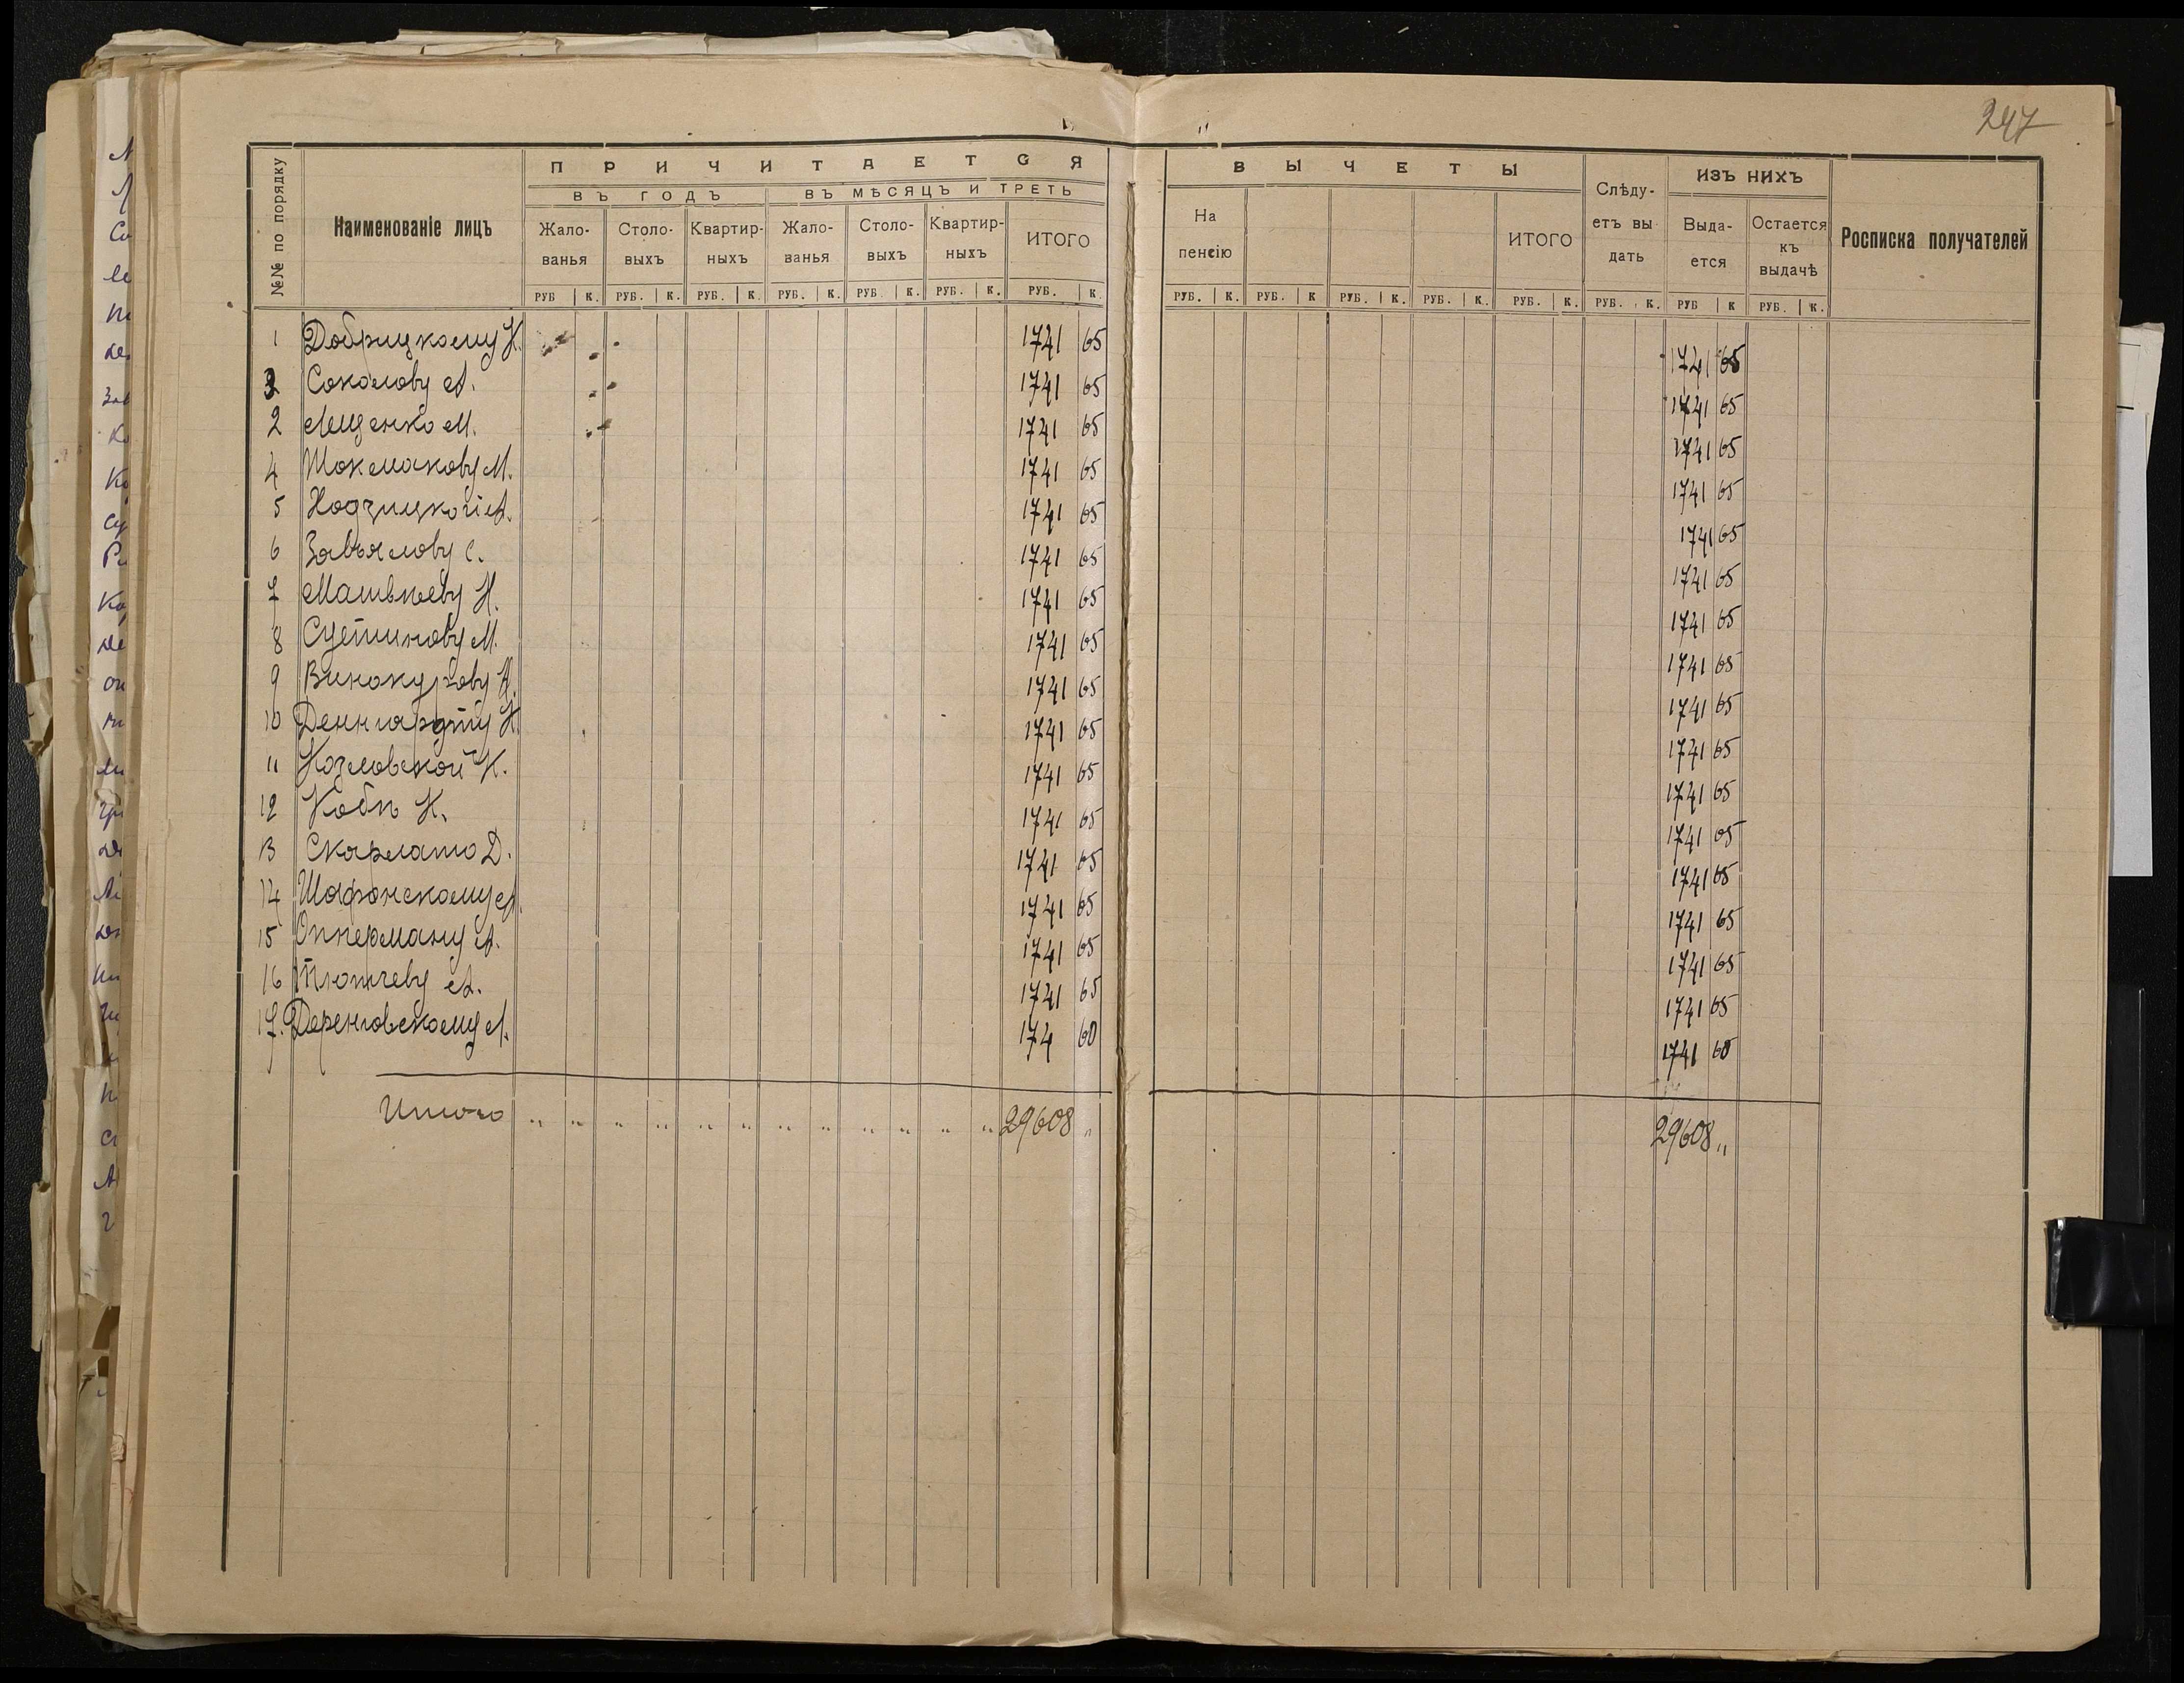 247
№№ по порядку
Наименованіе лицъ
ПРИЧИТАЕТСЯ
ВЪ ГОДЪ
ВЪ МѢСЯЦЪ И ТРЕТЬ
Жало-ванья
Столо-выхъ
Квартир-ныхъ
Жало-ванья
Столо-выхъ
Квартир-ныхъ
ИТОГО
РУБ К. РУБ. К. РУБ. К. РУБ. К. РУБ. К. РУБ. К. РУБ. К.
ВЫЧЕТЫ
На пенсію
ИТОГО
Слѣду-етъ вы дать
ИЗЪ НИХЪ
Выда-ется
Остается къ выдачѣ
Росписка получателей
РУБ. К. РУБ. К РУБ. К. РУБ. К. РУБ. К. РУБ. К. РУБ К РУБ. К.
1 Добрицкому К. 1741 65 1741 65
3 Соколову А. 1741 65 1741 65
2 Лещенко М. 1741 65 1741 65
4 Шокмакову М. 1741 65 1741 65
5 Ходзицкой А. 1741 65 1741 65
6 Завьялову С. 1741 65 1741 65
7 Матвѣеву Н. 1741 65 1741 65
8 Сутминову М. 1741 65 1741 65
9 Винокурову 1741 65 1741 65
10 Денгардту К. 1741 65 1741 65
11 Козловской К. 1741 65 1741 65
12 Кобъ К. 1741 65 1741 65
13 Скарлато Д. 1741 65 1741 65
14 Шафонскому А. 1741 65 1741 65
15 Опперману А. 1741 65 1741 65
16 Тютчеву А. 1741 65 1741 65
17. Деренговскому А. 174 60 1741 60
Итого „ „ „ „ „ „ „ „ „ „ „ „ 29608 „ 29608 „